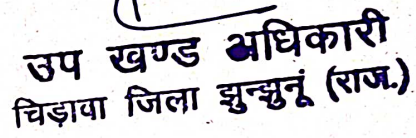 उप खण्ड अधिकारी
चिड़ावा जिला झुन्झुनूं (राज.)